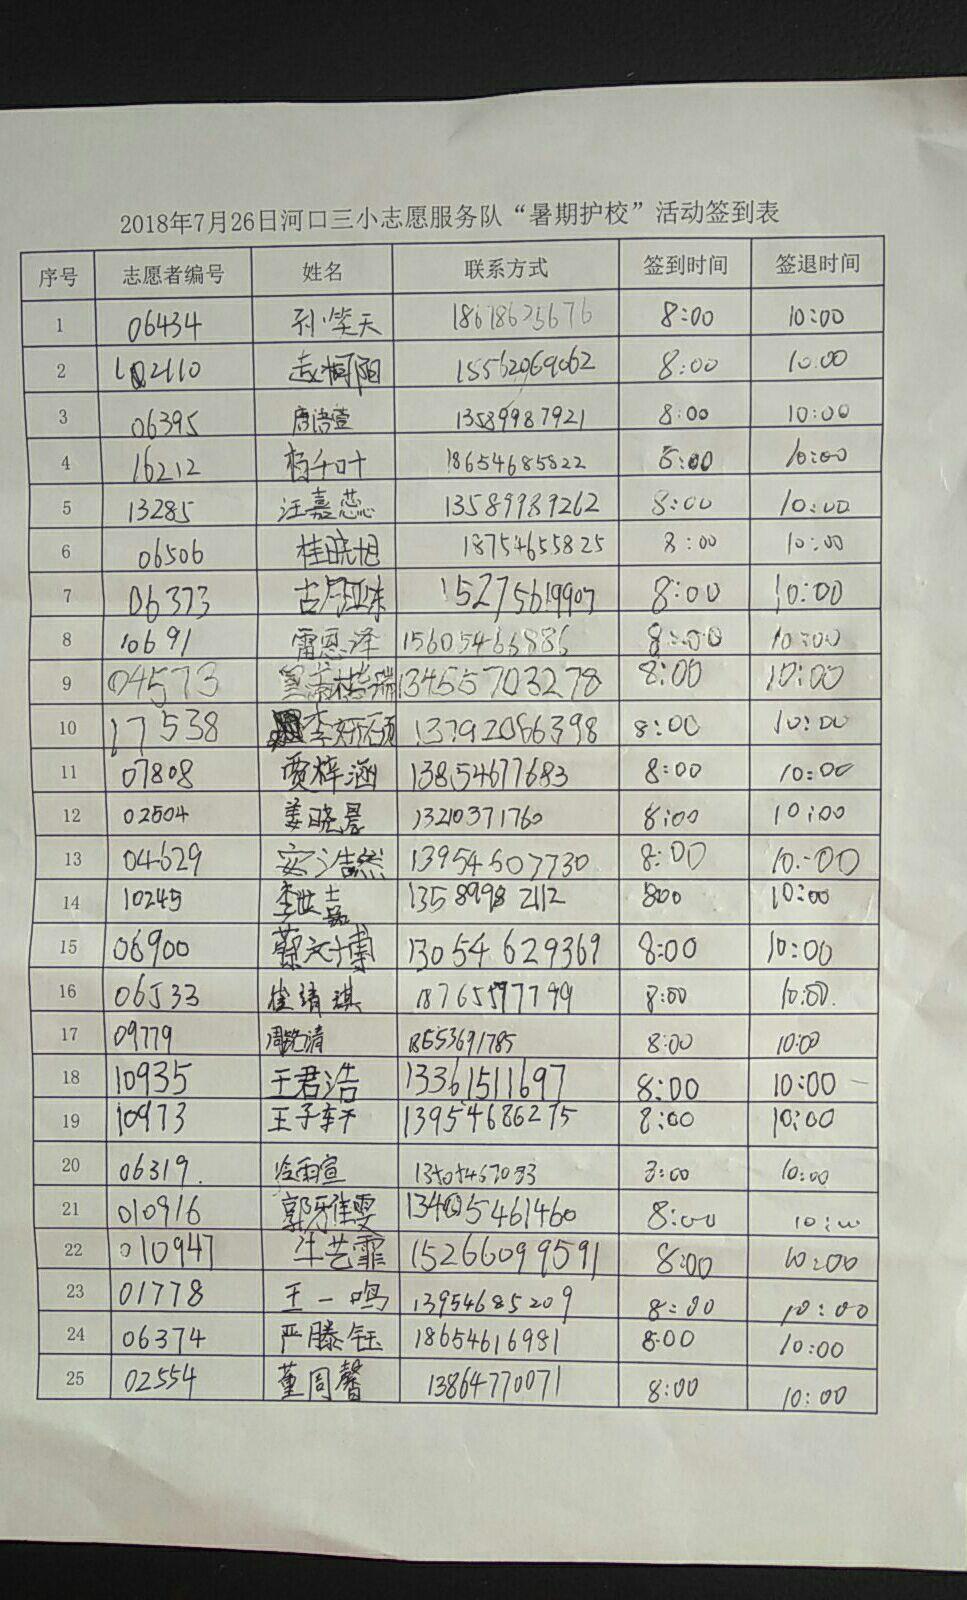 2018年7月26日河口三小志愿服务队“暑期护校”活动签到表
序号 志愿者编号 姓名 联系方式 签到时间 签退时间
1 06434 孙笑天 18678625676 8:00 10:00
2 02110 赵桐阳 15562069062 8:00 10:00
3 06395 唐语萱 13589987921 8:00 10:00
4 16212 杨千叶 18654685822 8:00 10:00
5 13285 汪嘉蕊 13589989262 8:00 10:00
6 06506 桂晓旭 18754655825 8:00 10:00
7 06373 胡珏沫 15275619907 8:00 10:00
8 10691 雷恩泽 15605466886 8:00 10:00
9 04573 13455703278 8:00 10:00
10 17538 李 13792066398 8:00 10:00
11 07808 贾梓涵 13854677683 8:00 10:00
12 02504 姜晓晨 13210371760 8:00 10:00
13 04629 安浩然 13954607730 8:00 10:00
14 10245 李世嘉 13589982112 8:00 10:00
15 06900 蔡文博 13054629369 8:00 10:00
16 06533 崔靖淇 18765597799 8:00 10:00.
17 09779 周 清 18553691785 8:00 10:00
18 10935 王君浩 13361511697 8:00 10:00
19 10973 王子轩 13954686275 8:00 10:00
20 06319. 冷雨宣 8:00 10:00
21 010916 郭雅雯 13405461460 8:00 10:00
22 010947 牛艺霏 15266099591 8:00 10:00
23 01778 王一鸣 13954685209 8:00 10:00
24 06374 严滕钰 18654616981 8:00 10:00
25 02554 董同馨 13864770071 8:00 10:00